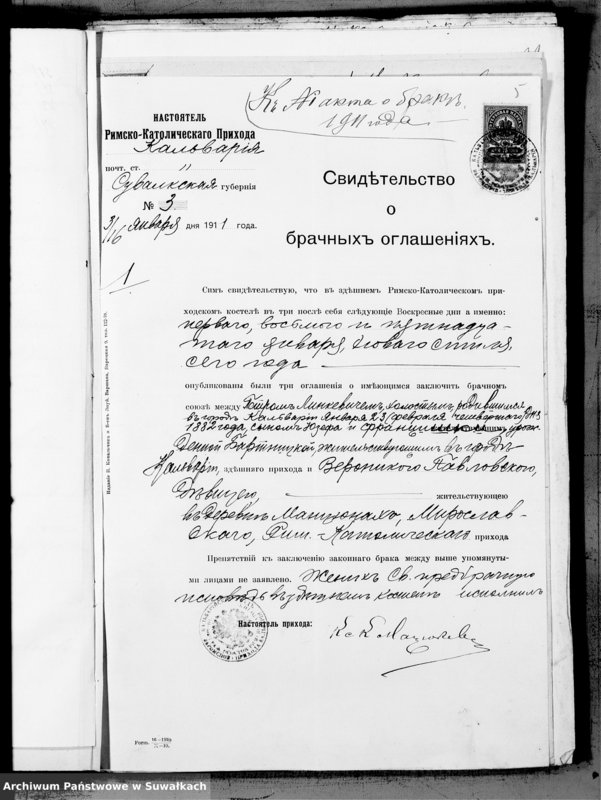 5
Къ № акта о бракѣ
1911 года
НАСТОЯТЕЛЬ
Римско-Католическаго Прихода
Кальварія
почт. ст. "
Сувалкская губернія
№ 3
3/16 января дня 1911 года.
Свидѣтельство
о
брачныхъ оглашеніяхъ.
1
Симъ свидѣтельствую, что въ здѣшнемъ Римско-Католическомъ при-
ходскомъ костелѣ въ три послѣ себя слѣдующіе Воскресные дни а именно:
перваго, восьмого и пятнадца-
таго января, новаго стиля,
сего года
опубликованы были три оглашенія о имѣющимся заключить брачномъ
союзѣ между Петромъ Линкевичемъ, холостымъ, родившимся
въ городѣ Кальваріи Января 23/февраля четвертаго дня
1882 года, сыномъ Юзефа и
жительствующимъ въ городѣ
Кальваріи, здѣшняго прихода и Вероникою Павловскою,
Дѣвицею, жительствующею
въ деревнѣ Мирослав-
скаго, Рим.-Католическаго прихода
Препятствій къ заключенію законнаго брака между выше упомянуты-
ми лицами не заявлено. Женихъ Св. предбрачную
исповѣдь въ здѣшнемъ костелѣ исполнилъ
Настоятель прихода:
Form. 16.—1909
X.—10.
Archiwum Państwowe w Suwałkach